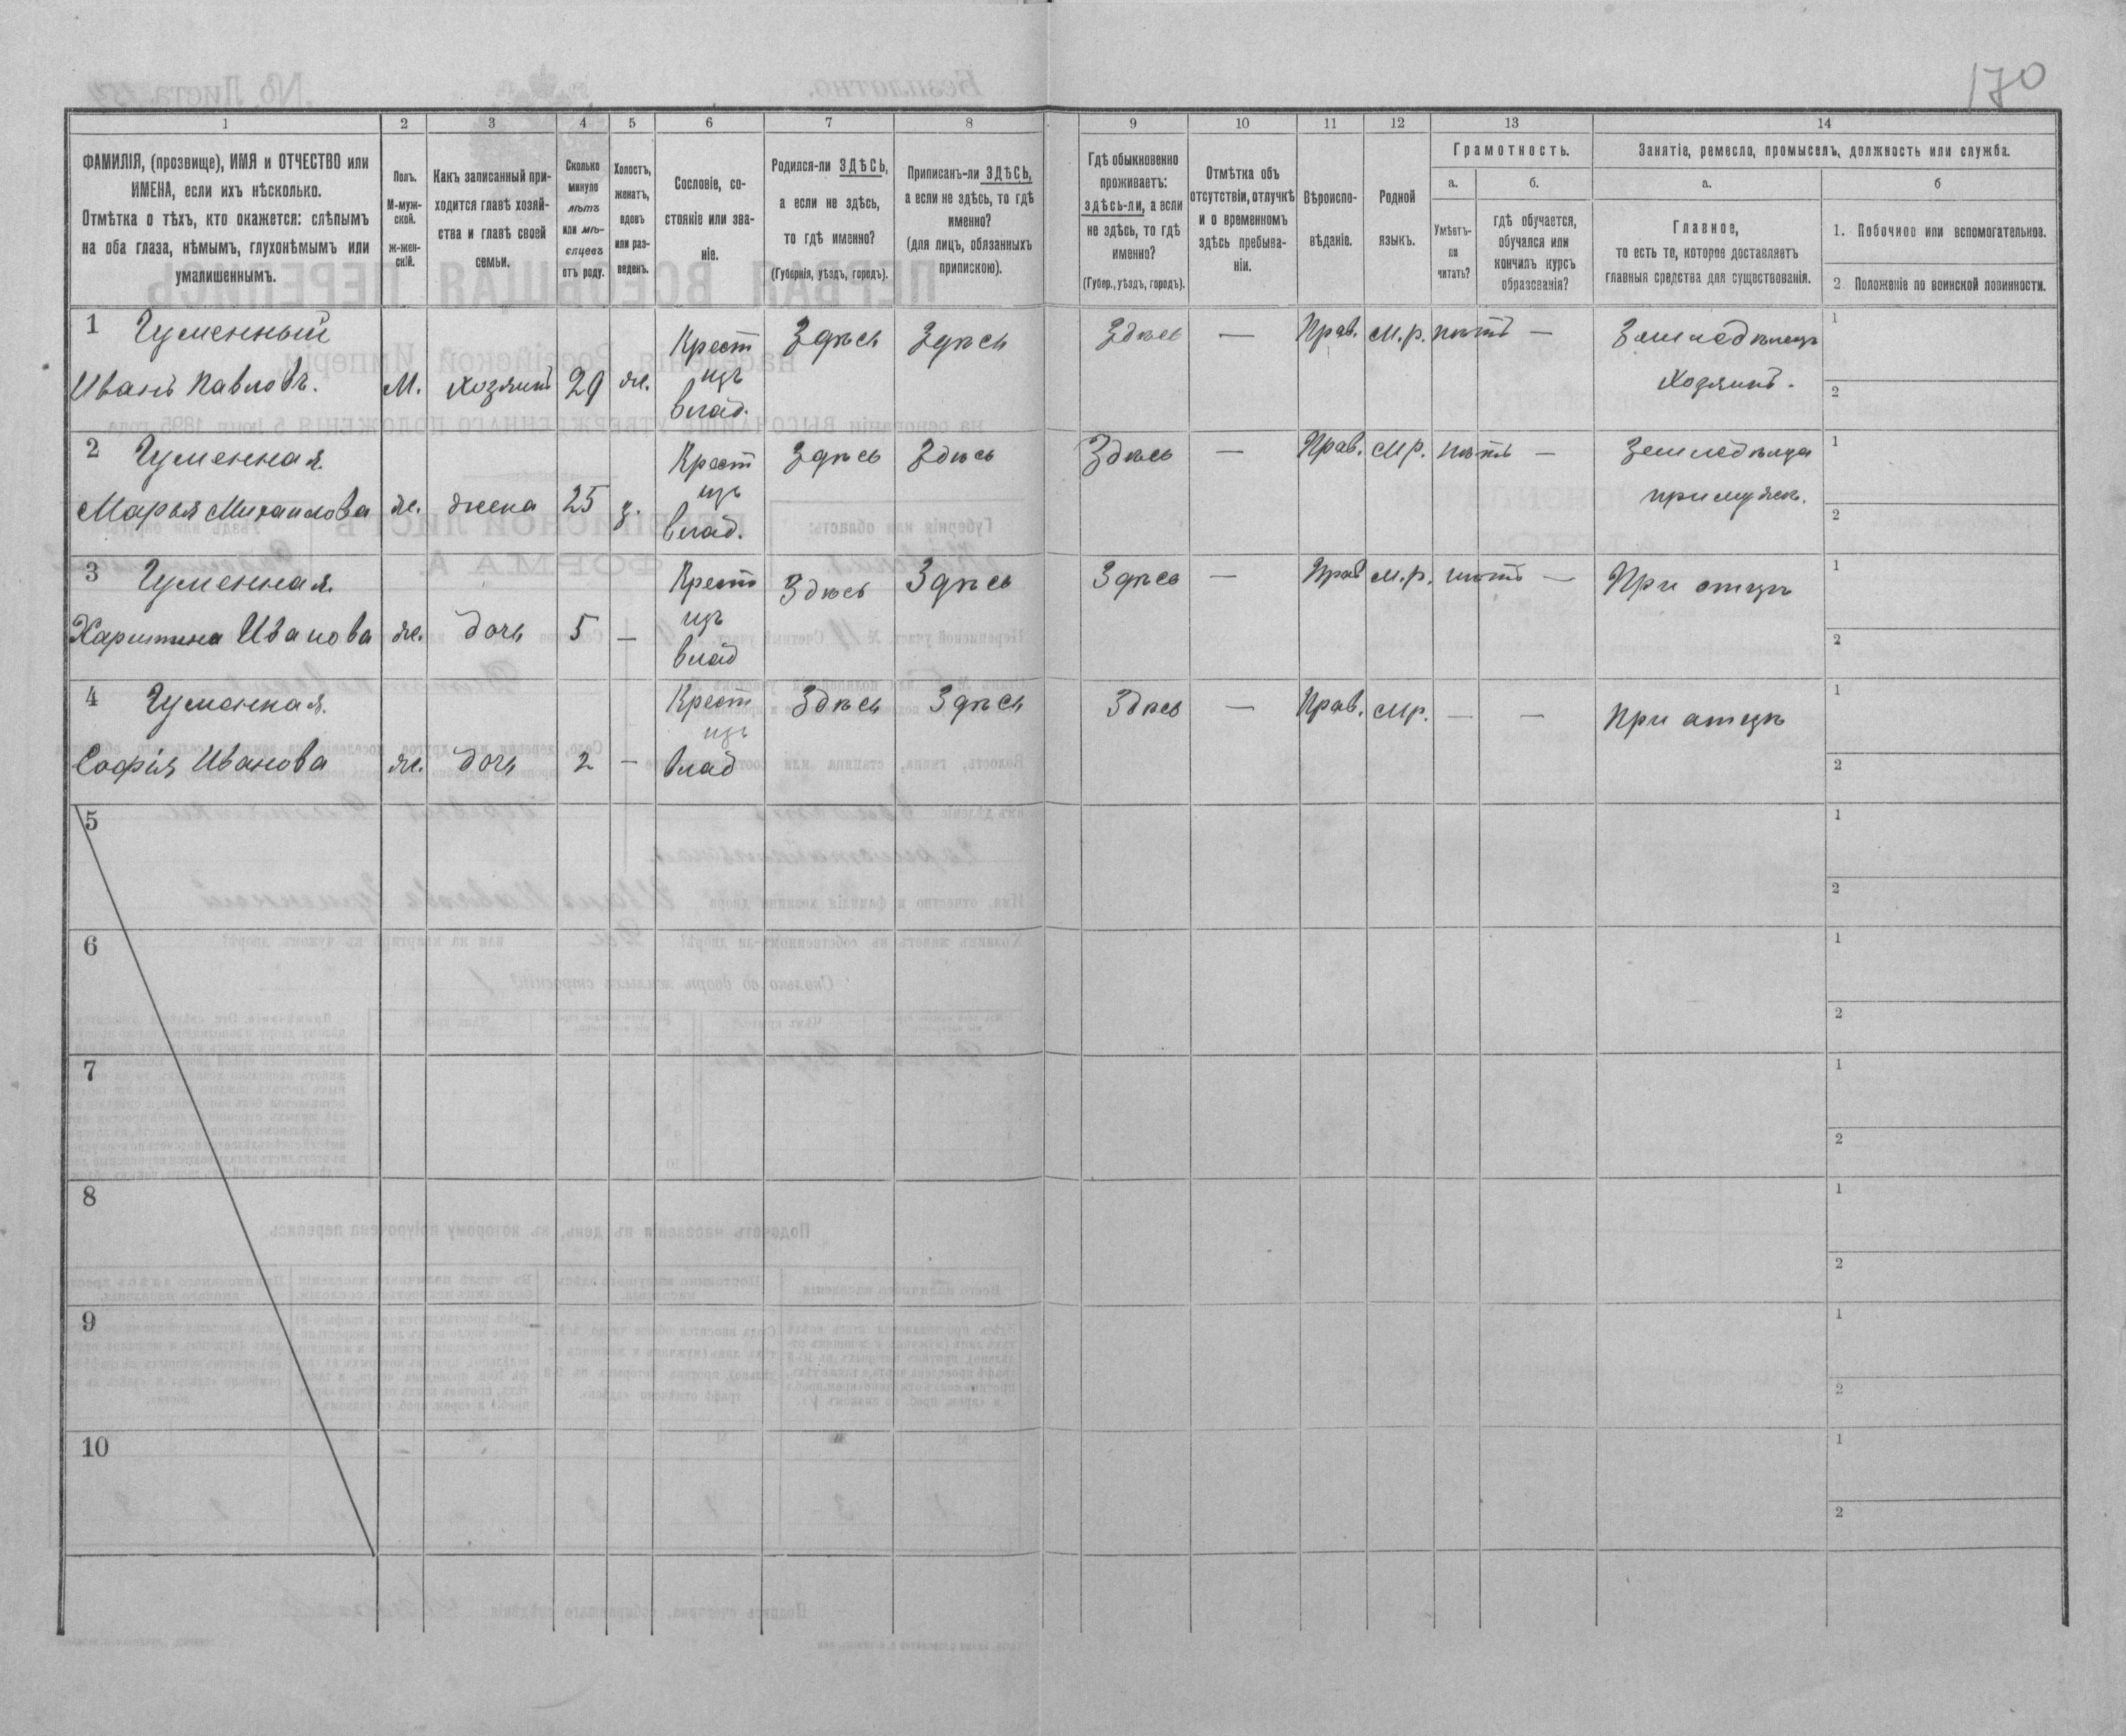 170
1 2 3 4 5 6 7 8 9 10 11 12 13 14
ФАМИЛІЯ, (прозвище), ИМЯ и ОТЧЕСТВО или
ИМЕНА, если ихъ нѣсколько.
Отмѣтка о тѣхъ, кто окажется: слѣпымъ
на оба глаза, нѣмымъ, глухонѣмымъ или
умалишеннымъ.
Полъ.
М-муж-
ской.
ж-жен-
скій.
Какъ записанный при-
ходится главѣ хозяй-
ства и главѣ своей
семьи.
Сколько
минуло
лѣтъ
или мѣ-
сяцевъ
отъ роду.
Холостъ,
женатъ,
вдовъ
или раз-
веденъ.
Сословіе, со-
стояніе или зва-
ніе.
Родился-ли ЗДѢСЬ,
а если не здѣсь,
то гдѣ именно?
(Губернія, уѣздъ, городъ).
Приписанъ-ли ЗДѢСЬ,
а если не здѣсь, то гдѣ
именно?
(для лицъ, обязанныхъ
припискою).
Гдѣ обыкновенно
проживаетъ:
здѣсь-ли, а если
не здѣсь, то гдѣ
именно?
(Губер., уѣздъ, городъ).
Отмѣтка объ
отсутствіи, отлучкѣ
и о временномъ
здѣсь пребыва-
ніи.
Вѣроиспо-
вѣданіе.
Родной
языкъ.
Грамотность.
а. б.
Умѣетъ-
ли
читать?
гдѣ обучается,
обучался или
кончилъ курсъ
образованія?
Занятіе, ремесло, промыселъ, должность или служба.
а. б
Главное,
то есть то, которое доставляетъ
главныя средства для существованія.
1. Побочное или вспомогательное.
2 Положеніе по воинской повинности.
1 Гуменный Крест Здѣсь Здѣсь Здѣсь — Прав. м.р. нѣтъ — Земледѣлецъ 1
Иванъ Павловъ. М. хозяинъ 29 ж. изъ Хозяинъ. 2
влад.
2 Гуменная Крест Здѣсь Здѣсь Здѣсь — Прав. м.р. нѣтъ — Земледѣлца 1
Марья Михаилова ж. жена 25 з. изъ при муж. 2
влад.
3 Гуменная Крест Здѣсь Здѣсь Здѣсь — Прав м.р. нѣтъ — При отцѣ 1
Харитина Иванова ж. дочь 5 — изъ 2
влад
4 Гуменная Крест Здѣсь Здѣсь Здѣсь — Прав. м.р. — — При отцѣ 1
Софія Иванова ж. дочь 2 — изъ 2
влад
5 1
2
6 1
2
7 1
2
8 1
2
9 1
2
10 1
2